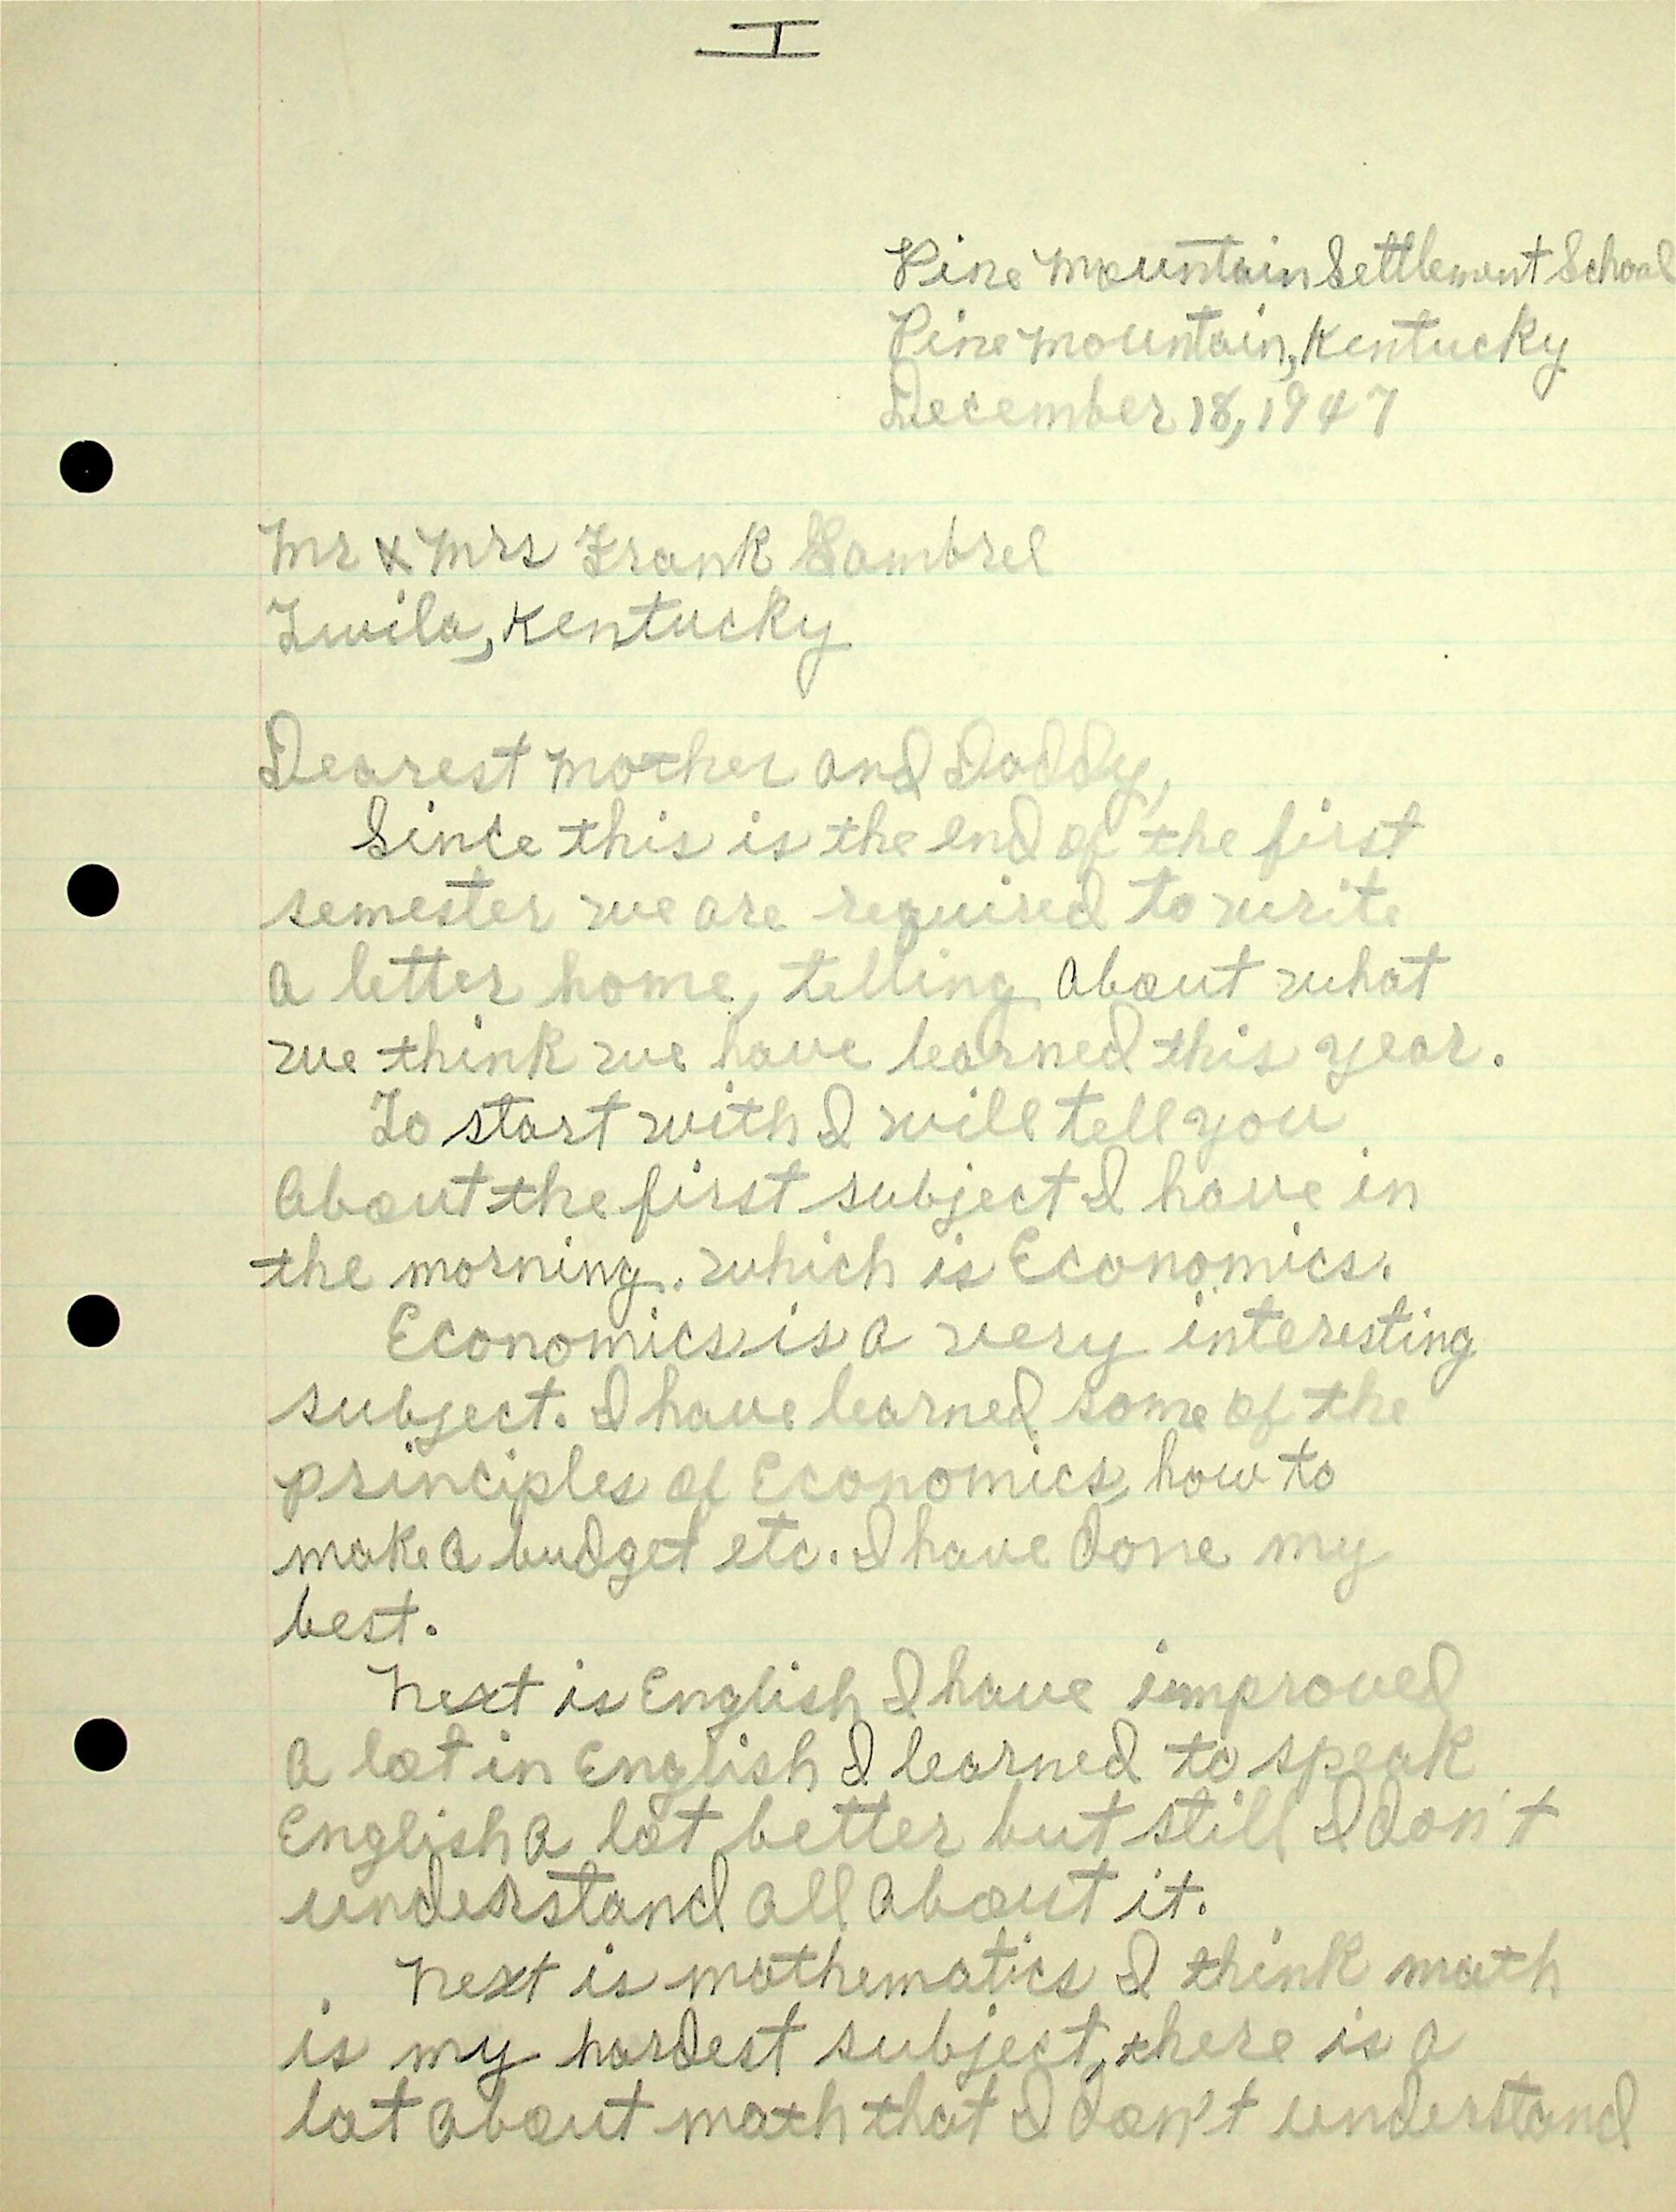 I
Pine Mountain Settlement School
Pine Mountain, Kentucky
December 18, 1947
Mr & Mrs Frank Sambrel
Twila, Kentucky
Dearest Mother and Daddy,
Since this is the end of the first
semester we are required to write
a letter home, telling about what
we think we have learned this year.
To start with I will tell you
about the first subject I have in
the morning. which is Economics.
Economics is a very interesting
subject. I have learned some of the
principles of Economics, how to
make a budget etc. I have done my
best.
Next is English I have improved
a lot in English I learned to speak
English a lot better but still I don't
understand all about it.
Next is mathematics I think math
is my hardest subject, there is a
lot about math that I don't understand